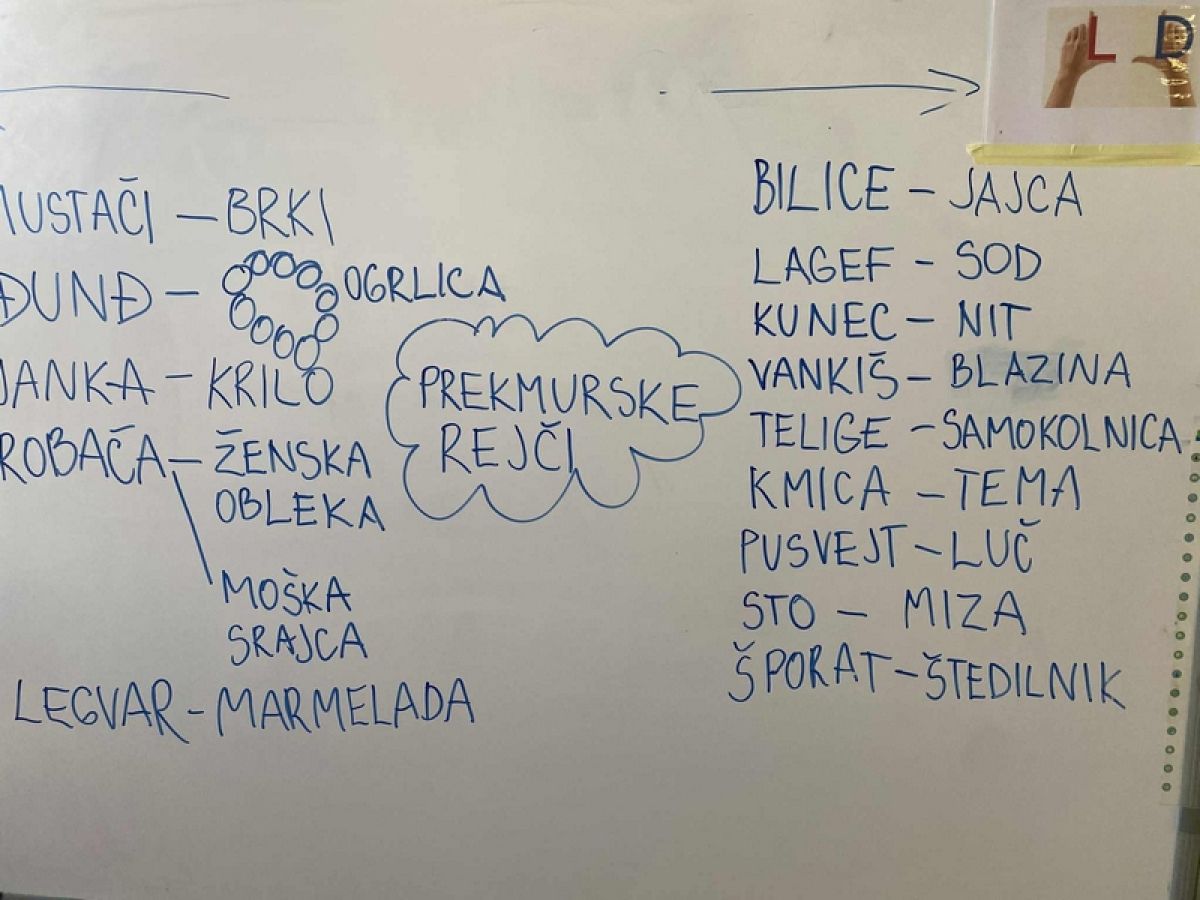 L D
MUSTAČI – BRKI
ĐUNĐ – OGRLICA
JANKA – KRILO
ROBAČA – ŽENSKA
OBLEKA
MOŠKA
SRAJCA
LEGVAR – MARMELADA
PREKMURSKE
REJČI
BILICE – JAJCA
LAGEF – SOD
KUNEC – NIT
VANKIŠ – BLAZINA
TELIGE – SAMOKOLNICA
KMICA – TEMA
PUSVEJT – LUČ
STO – MIZA
ŠPORAT – ŠTEDILNIK